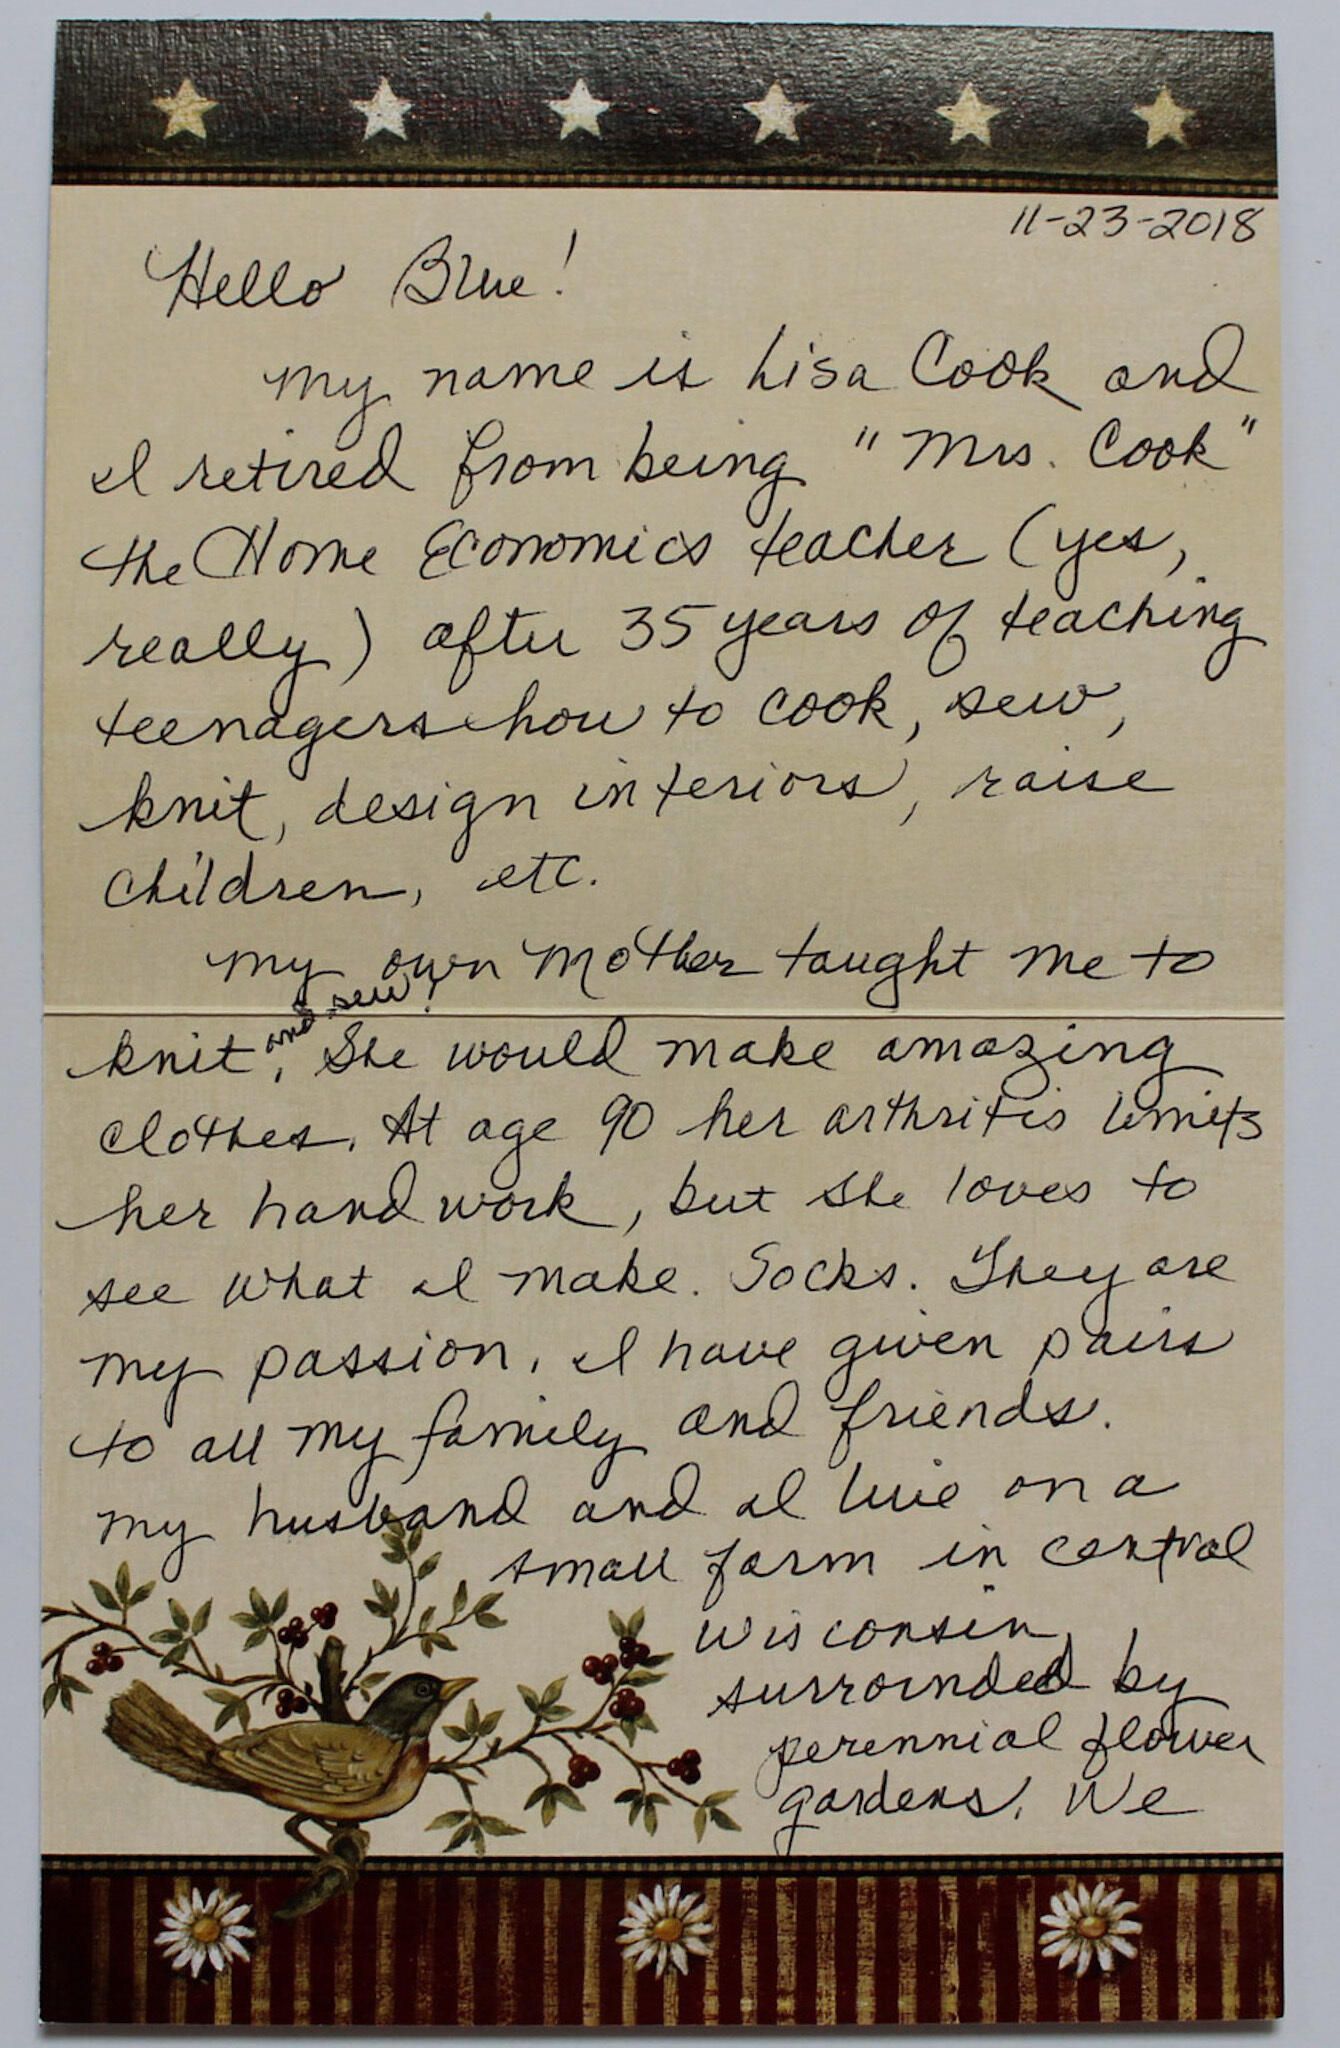 11-23-2018
Hello Blue!
My name is Lisa Cook and
I retired from being "Mrs. Cook"
the Home Economics teacher (yes,
really) after 35 years of teaching
teenagers how to cook, sew,
knit, design interiors, raise
children, etc.
My own Mother taught me to
knit, and sew! She would make amazing
clothes. At age 90 her arthritis limits
her hand work, but she loves to
see what I make. Socks. They are
my passion. I have given pairs
to all my family and friends.
My husband and I live on a
small farm in central
Wisconsin,
surrounded by
perennial flower
gardens. We